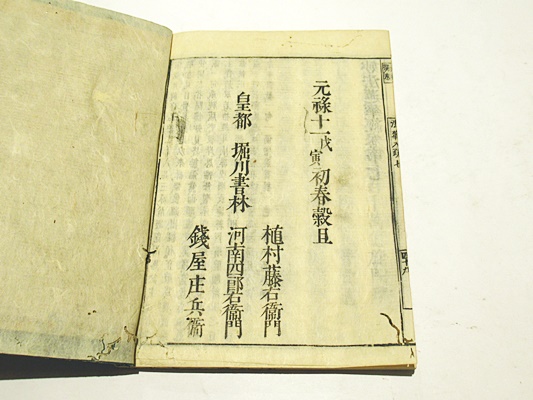 元祿十一戊寅初春穀旦
植村藤右衛門
皇都 堀川書林 河南四郎右衛門
錢屋庄兵衛